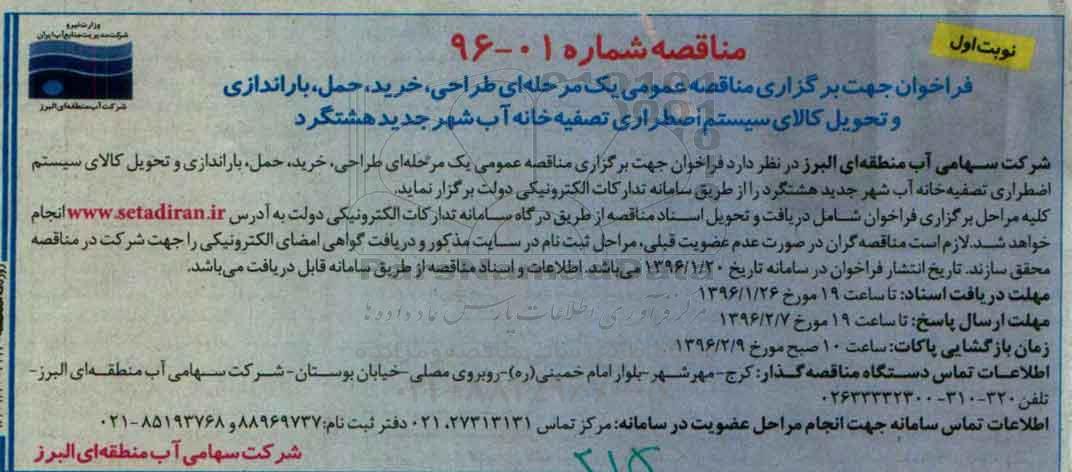 وزارت نیرو
شرکت مدیریت منابع آب ایران
شرکت آب منطقه‌ای البرز
نوبت اول
مناقصه شماره ۰۱-۹۶
فراخوان جهت برگزاری مناقصه عمومی یک مرحله‌ای طراحی، خرید، حمل، باراندازی
و تحویل کالای سیستم اضطراری تصفیه خانه آب شهر جدید هشتگرد
شرکت سهامی آب منطقه‌ای البرز در نظر دارد فراخوان جهت برگزاری مناقصه عمومی یک مرحله‌ای طراحی، خرید، حمل، باراندازی و تحویل کالای سیستم
اضطراری تصفیه‌خانه آب شهر جدید هشتگرد را از طریق سامانه تدارکات الکترونیکی دولت برگزار نماید.
کلیه مراحل برگزاری فراخوان شامل دریافت و تحویل اسناد مناقصه از طریق درگاه سامانه تدارکات الکترونیکی دولت به آدرس www.setadiran.ir انجام
خواهد شد. لازم است مناقصه‌گران در صورت عدم عضویت قبلی، مراحل ثبت نام در سایت مذکور و دریافت گواهی امضای الکترونیکی را جهت شرکت در مناقصه
محقق سازند. تاریخ انتشار فراخوان در سامانه تاریخ ۱۳۹۶/۱/۲۰ می‌باشد. اطلاعات و اسناد مناقصه از طریق سامانه قابل دریافت می‌باشد.
مهلت دریافت اسناد: تا ساعت ۱۹ مورخ ۱۳۹۶/۱/۲۶
مهلت ارسال پاسخ: تا ساعت ۱۹ مورخ ۱۳۹۶/۲/۷
زمان بازگشایی پاکات: ساعت ۱۰ صبح مورخ ۱۳۹۶/۲/۹
اطلاعات تماس دستگاه مناقصه‌گذار: کرج-مهرشهر-بلوار امام خمینی(ره)-روبروی مصلی-خیابان بوستان-شرکت سهامی آب منطقه‌ای البرز-
تلفن ۳۲۰-۳۱۰-۰۲۶۳۳۳۳۲۳۰۰
اطلاعات تماس سامانه جهت انجام مراحل عضویت در سامانه: مرکز تماس ۲۷۳۱۳۱۳۱، ۰۲۱ دفتر ثبت نام: ۸۸۹۶۹۷۳۷ و ۸۵۱۹۳۷۶۸-۰۲۱
شرکت سهامی آب منطقه‌ای البرز